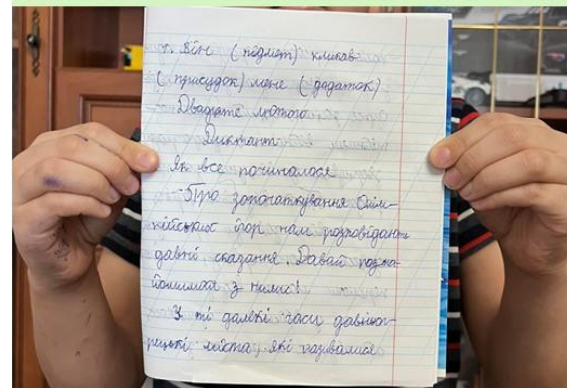 т. Він (підмет) кликав
(присудок) мене (додаток)
Двадцяте лютого
Диктант
Як все починалося
Про започаткування Олім-
пійських ігор нам розповідають
давні сказання. Давай позна-
йомимося з ними!
У ті далекі часи давньог-
рецькі міста, які називалися